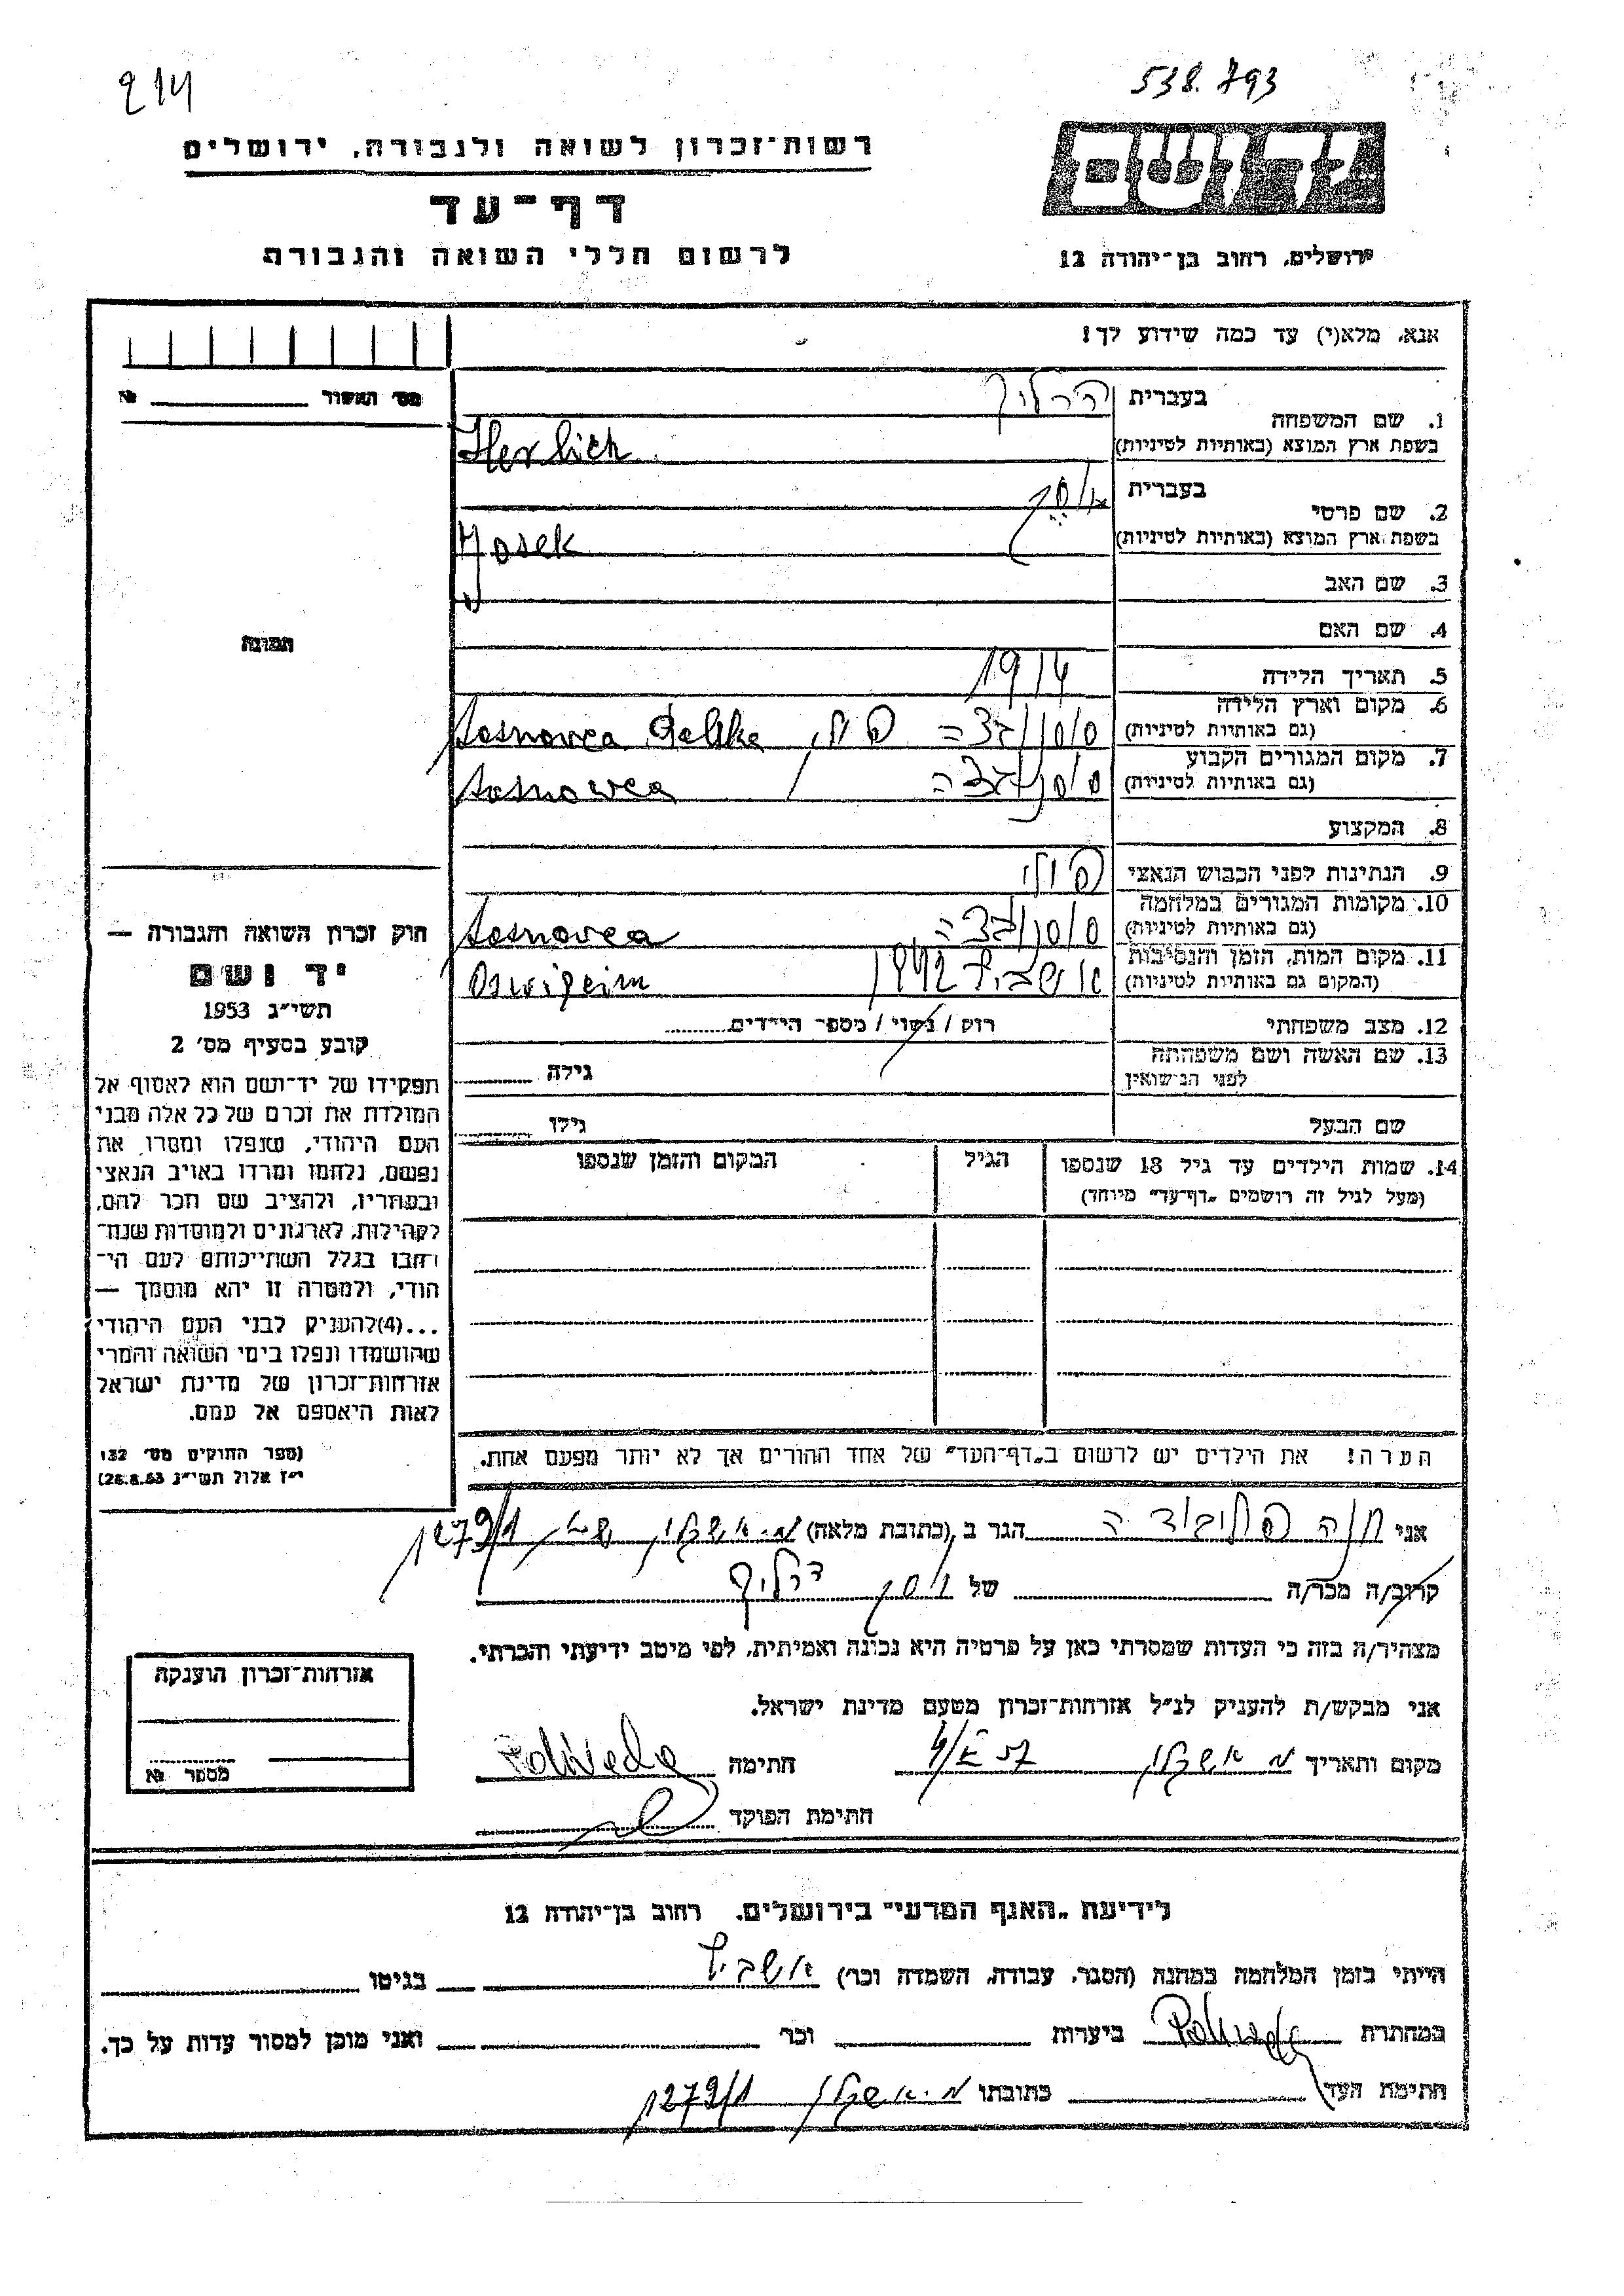 214
538.793
רשות־זכרון לשואה ולגבורה, ירושלים
דף־עד
לרשום חללי השואה והגבורה
יד ושם
ירושלים, רחוב בן־יהודה 12
אנא, מלא(י) עד כמה שידוע לך!
מס׳ האשור №
1. שם המשפחה
בעברית הרליך
בשפת ארץ המוצא (באותיות לטיניות) Herlich
2. שם פרטי
בעברית
בשפת ארץ המוצא (באותיות לטיניות) Josek
3. שם האב
4. שם האם
5. תאריך הלידה 1914
6. מקום וארץ הלידה
(גם באותיות לטיניות) Sosnowca
7. מקום המגורים הקבוע
(גם באותיות לטיניות) Sosnowca
8. המקצוע
9. הנתינות לפני הכבוש הנאצי פולי
10. מקומות המגורים במלחמה
(גם באותיות לטיניות) Sosnovca
11. מקום המות, הזמן והנסיבות
(המקום גם באותיות לטיניות) אושביץ 1942
12. מצב משפחתי רוק / נשוי / מספר הילדים
13. שם האשה ושם משפחתה
לפני הנישואין
גילה
שם הבעל גילו
14. שמות הילדים עד גיל 18 שנספו
(מעל לגיל זה רושמים „דף־עד״ מיוחד)
הגיל
המקום והזמן שנספו
הערה! את הילדים יש לרשום ב„דף־העד״ של אחד ההורים אך לא יותר מפעם אחת.
תמונה
חוק זכרון השואה והגבורה —
יד ושם
תשי״ג 1953
קובע בסעיף מס׳ 2
תפקידו של יד־ושם הוא לאסוף אל
המולדת את זכרם של כל אלה מבני
העם היהודי, שנפלו ומסרו את
נפשם, נלחמו ומרדו באויב הנאצי
ובעוזריו, ולהציב שם וזכר להם,
לקהילות, לארגונים ולמוסדות שנח־
רבו בגלל השתייכותם לעם הי־
הודי, ולמטרה זו יהא מוסמך —
...(4)להעניק לבני העם היהודי
שהושמדו ונפלו בימי השואה והמרי
אזרחות־זכרון של מדינת ישראל
לאות היאספם אל עמם.
(ספר החוקים מס׳ 132
י״ז אלול תשי״ג 28.8.53)
אני חנה הגר ב (כתובת מלאה) מ. אשקלון 1279/1
קרוב/ה מכר/ה של
מצהיר/ה בזה כי העדות שמסרתי כאן על פרטיה היא נכונה ואמיתית, לפי מיטב ידיעתי והכרתי.
אני מבקש/ת להעניק לנ״ל אזרחות־זכרון מטעם מדינת ישראל.
מקום ותאריך מ אשקלון חתימה
חתימת הפוקד
אזרחות־זכרון הוענקה
מספר №
לידיעת „האגף המדעי״ בירושלים, רחוב בן־יהודה 12
הייתי בזמן המלחמה במחנה (הסגר, עבודה, השמדה וכו׳) אשביץ בגיטו
במחתרת ביערות וכו׳ ואני מוכן למסור עדות על כך.
חתימת העד כתובתו מ. אשקלון 1279/1